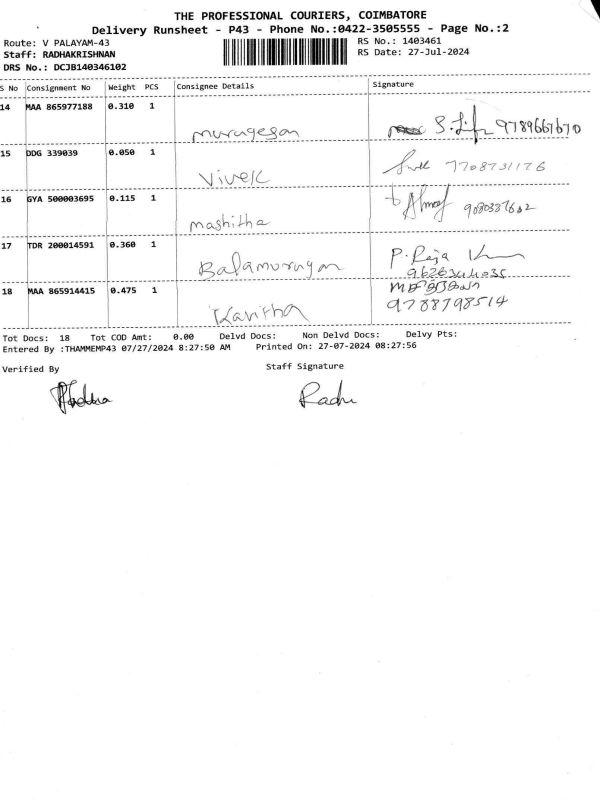 THE PROFESSIONAL COURIERS, COIMBATORE
Delivery Runsheet - P43 - Phone No.:0422-3505555 - Page No.:2
Route: V PALAYAM-43 RS No.: 1403461
Staff: RADHAKRISHNAN RS Date: 27-Jul-2024
DRS No.: DCJB140346102
S No Consignment No Weight PCS Consignee Details Signature
14 MAA 865977188 0.310 1
murugesan 9789667670
15 DDG 339039 0.050 1
Vivek 7708731176
16 GYA 500003695 0.115 1
mashitha
17 TDR 200014591 0.360 1
Balamurugan P. Raja
18 MAA 865914415 0.475 1
Kavitha 9788798514
Tot Docs: 18 Tot COD Amt: 0.00 Delvd Docs: Non Delvd Docs: Delvy Pts:
Entered By :THAMMEMP43 07/27/2024 8:27:50 AM Printed On: 27-07-2024 08:27:56
Verified By Staff Signature
Radhu